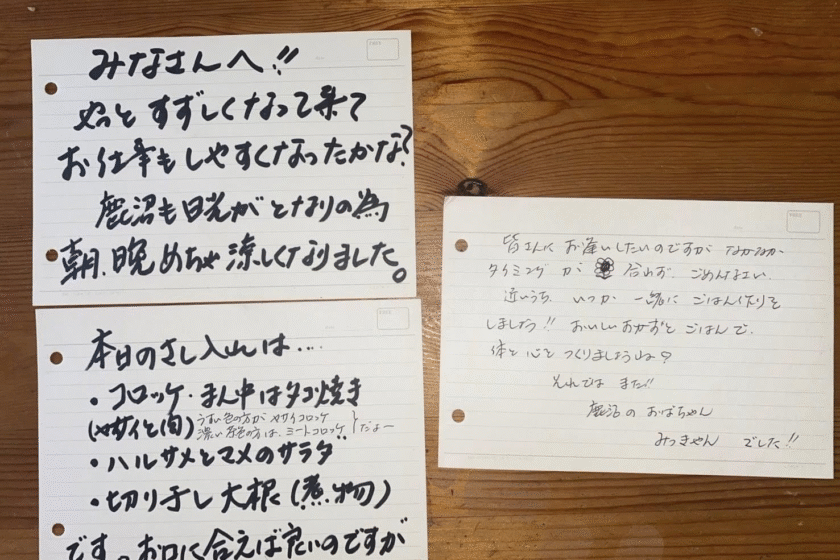 みなさんへ!!
やっとすずしくなって来て
お仕事もしやすくなったかな?
鹿沼も日光がとなりの為
朝、晩めちゃ涼しくなりました。
本日のさし入れは…
・コロッケ・まん中はタコ焼き
(ヤサイと肉)
うすい色の方がヤサイコロッケ
濃い茶色の方は、ミートコロッケ
だよー
・ハルサメとマメのサラダ
・切り干し大根(煮物)
です。お口に合えば良いのですが
皆さんに お逢いしたいのですが なかなか
タイミングが 合わず、ごめんなさい。
近いうち、いつか 一緒に ごはん作りを
しましょう!! おいしいおかずと ごはんで、
体と心と つくりましょうね?
それでは また!!
鹿沼の おばちゃん
みっきゃん でした!!